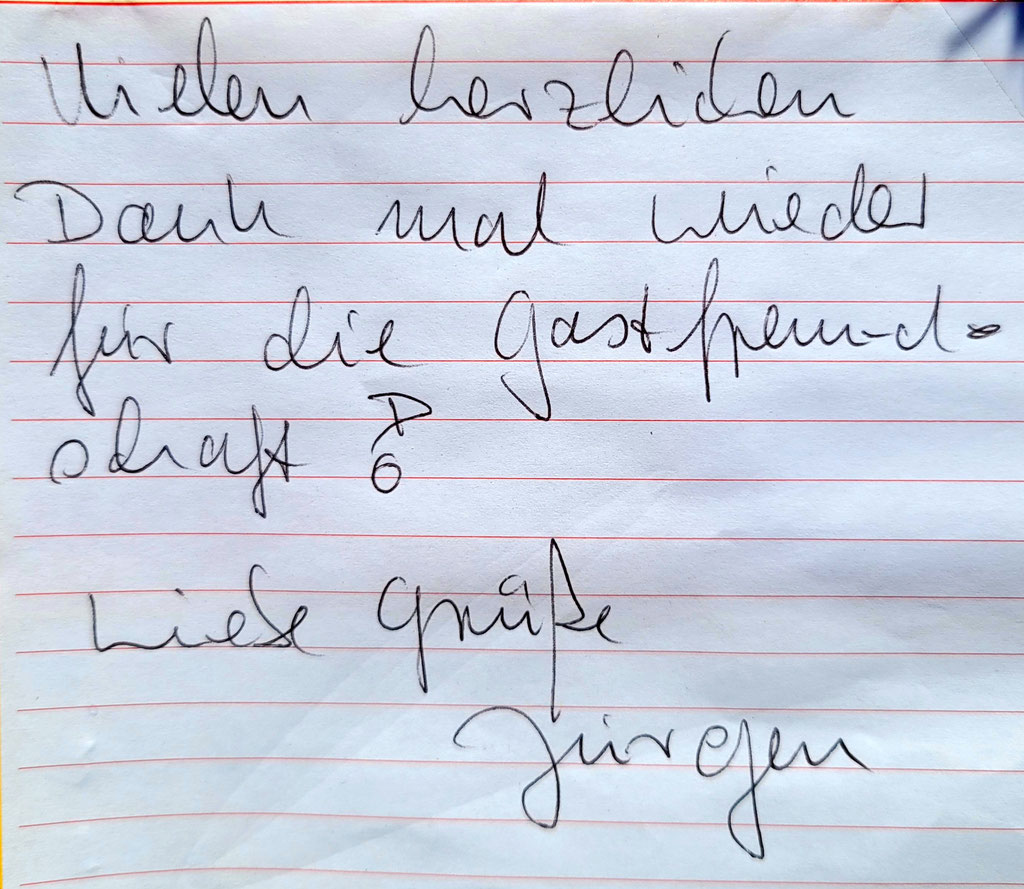 Vielen herzlichen
Dank mal wieder
für die Gastfreund-
schaft!
Liebe Grüße
Jürgen